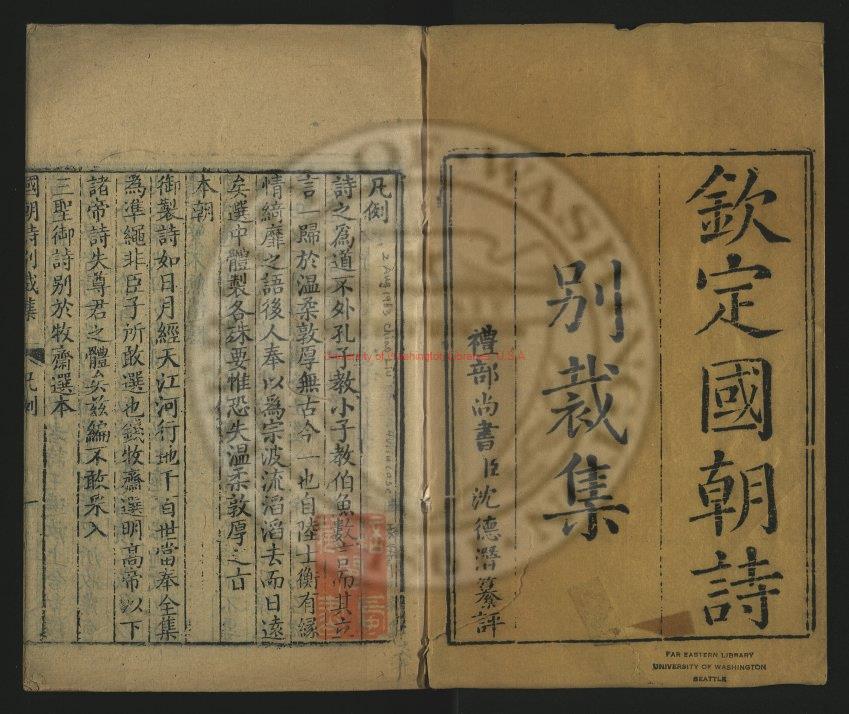 欽定國朝詩
别裁集
禮部尚書臣沈德潛纂評
凡例
詩之爲道不外孔子教小子教伯魚數言而其立
言一歸於温柔敦厚無古今一也自陸士衡有緣
情綺靡之語後人奉以爲宗波流滔滔去而日遠
矣選中體製各殊要惟恐失温柔敦厚之旨
本朝
御製詩如日月經天江河行地千百世當奉全集
為準繩非臣子所敢選也錢牧齋選明高帝以下
諸帝詩失尊君之體矣兹編不敢采入
三聖御詩别於牧齋選本
國朝詩别裁集 凡例 一
2 Aug 1983
University of Washington Libraries, U.S.A
FAR EASTERN LIBRARY
UNIVERSITY OF WASHINGTON
SEATTLE